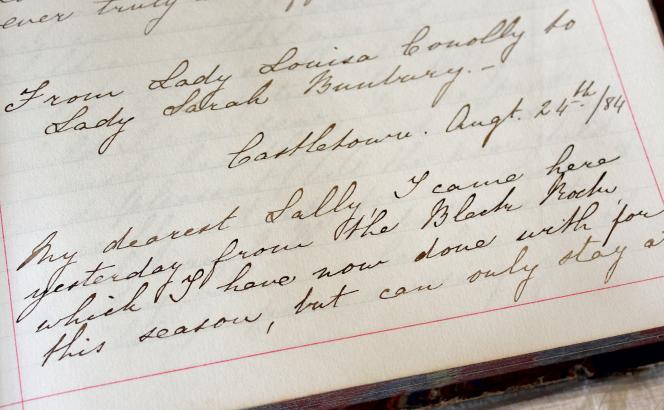 ever truly
From Lady Louisa Conolly to
Lady Sarah Bunbury.—
Castletown. Augt. 24th/84
My dearest Sally, I came here
yesterday from the Black Rock,
which I have now done with for
this season, but can only stay a